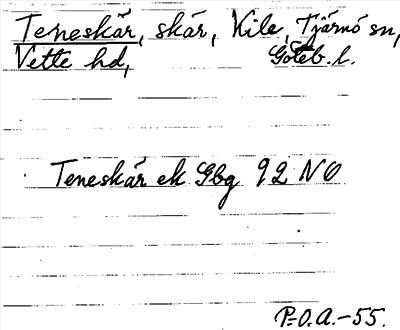 Teneskär, skär, Kile, Tjärnö sn,
Vette hd, Göteb. l.
Teneskär ek Gbg 92 NO
P.O.A.-55.